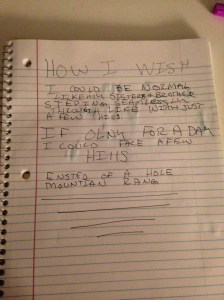 HOW I WISH
I COULD BE NORMAL
LIKE MY SISTERS & BROTHER
STEPING SEAMLESSLY
THROUGH LIFE WITH JUST
A FEW HILLS
IF OLNY FOR A DAY
I COULD FACE A FEW
HILLS
ENSTED OF A HOLE
MOUNTIAN RANG